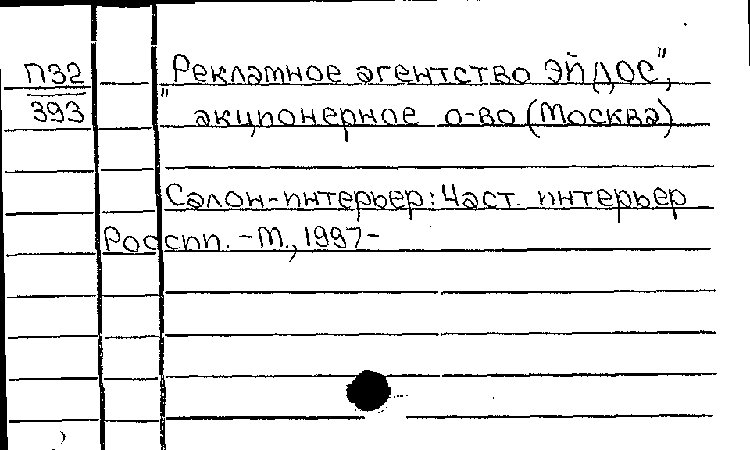 П32
393
"Рекламное агентство ЭЙДОС",
акционерное о-во (Москва)
Салон-интерьер: Част. интерьер
России. - М., 1997-